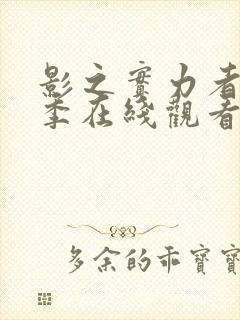 影之實力者
季在綫觀看
多余的乖寶寶